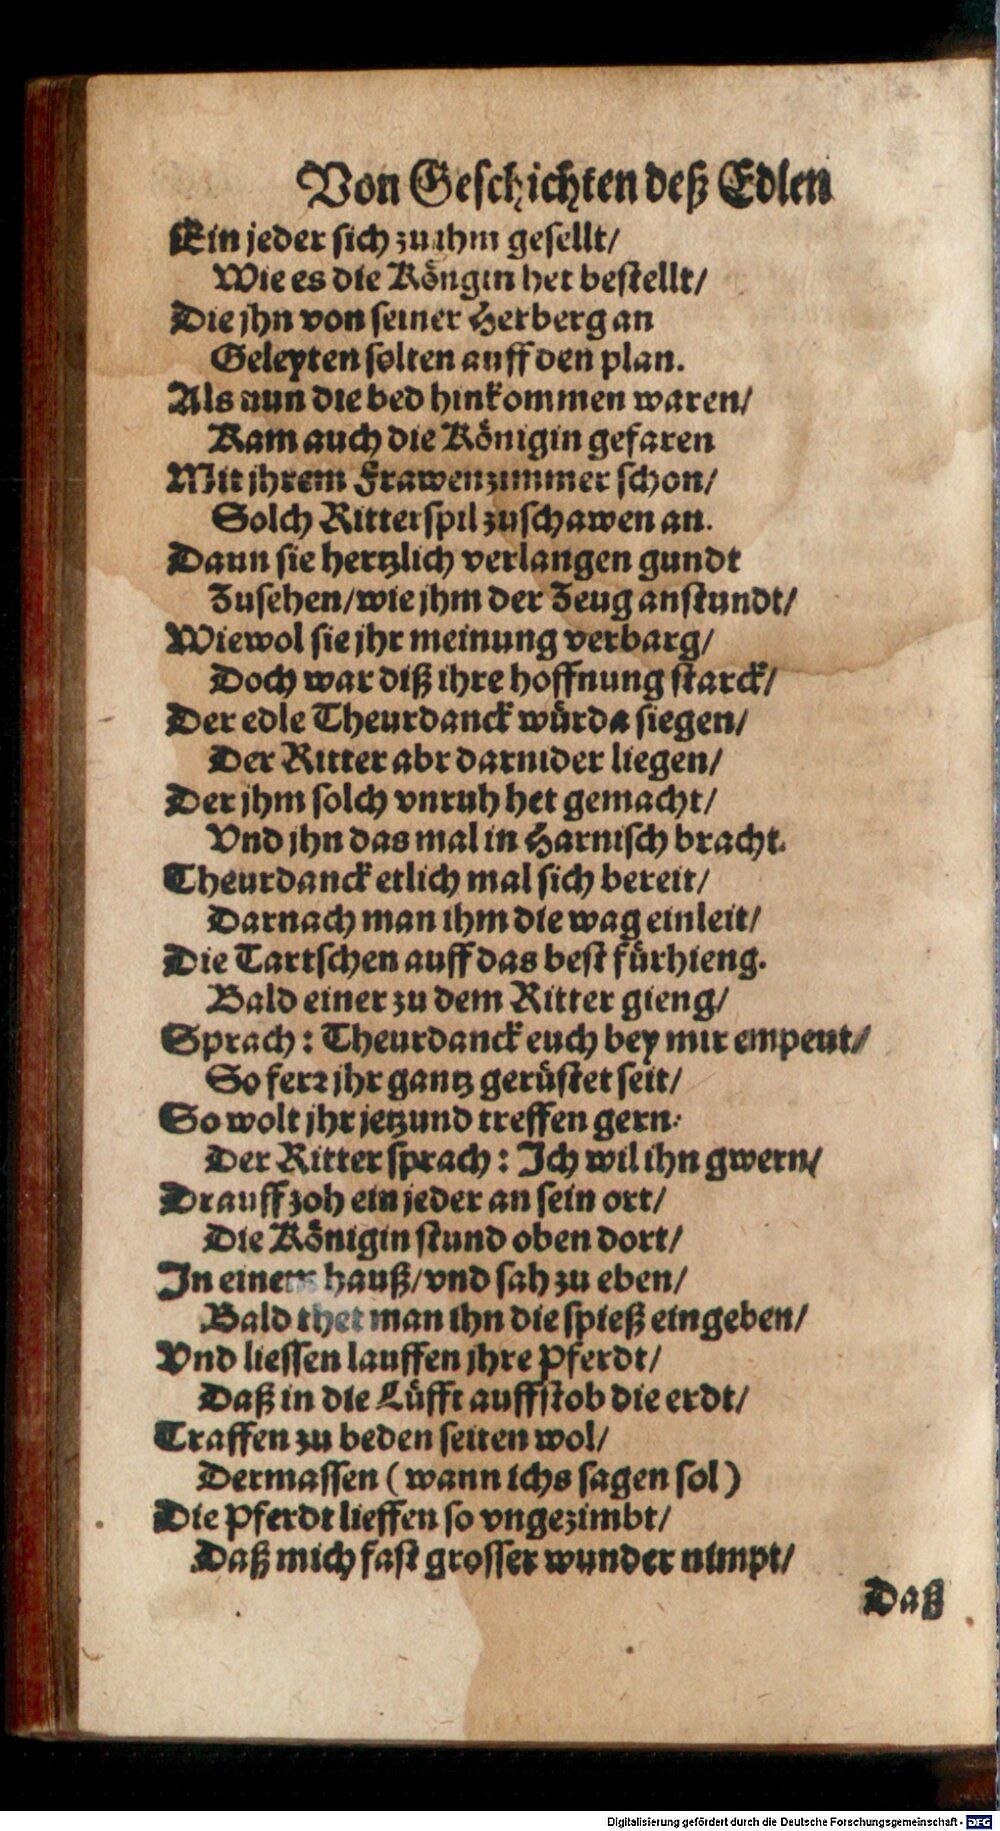 Von Geschichten deß Edlen
Ein jeder sich zu ihm gesellt/
Wie es die Köngin het bestellt/
Die jhn von seiner Herberg an
Geleyten solten auff den plan.
Als nun die bed hinkommen waren/
Kam auch die Königin gefaren
Mit jhrem Frawenzimmer schon/
Solch Ritterspil zuschawen an.
Dann sie hertzlich verlangen gundt
Zusehen/wie jhm der Zeug anstundt/
Wiewol sie jhr meinung verbarg/
Doch war diß ihre hoffnung starck/
Der edle Theurdanck würde siegen/
Der Ritter abr darnider liegen/
Der jhm solch vnruh het gemacht/
Vnd jhn das mal in Harnisch bracht.
Theurdanck etlich mal sich bereit/
Darnach man ihm die wag einleit/
Die Tartschen auff das best fürhieng.
Bald einer zu dem Ritter gieng/
Sprach: Theurdanck euch bey mir empeut/
So ferr jhr gantz gerüstet seit/
So wolt jhr jetzund treffen gern:
Der Ritter sprach: Ich wil ihn gwern/
Drauff zoh ein jeder an sein ort/
Die Königin stund oben dort/
In einem hauß/vnd sah zu eben/
Bald thet man ihn die spieß eingeben/
Vnd liessen lauffen jhre Pferdt/
Daß in die Lüfft auffstob die erdt/
Traffen zu beden seiten wol/
Dermassen (wann ichs sagen sol)
Die Pferdt lieffen so vngezimbt/
Daß mich fast grosser wunder nimpt/
Daß
Digitalisierung gefördert durch die Deutsche Forschungsgemeinschaft - DFG